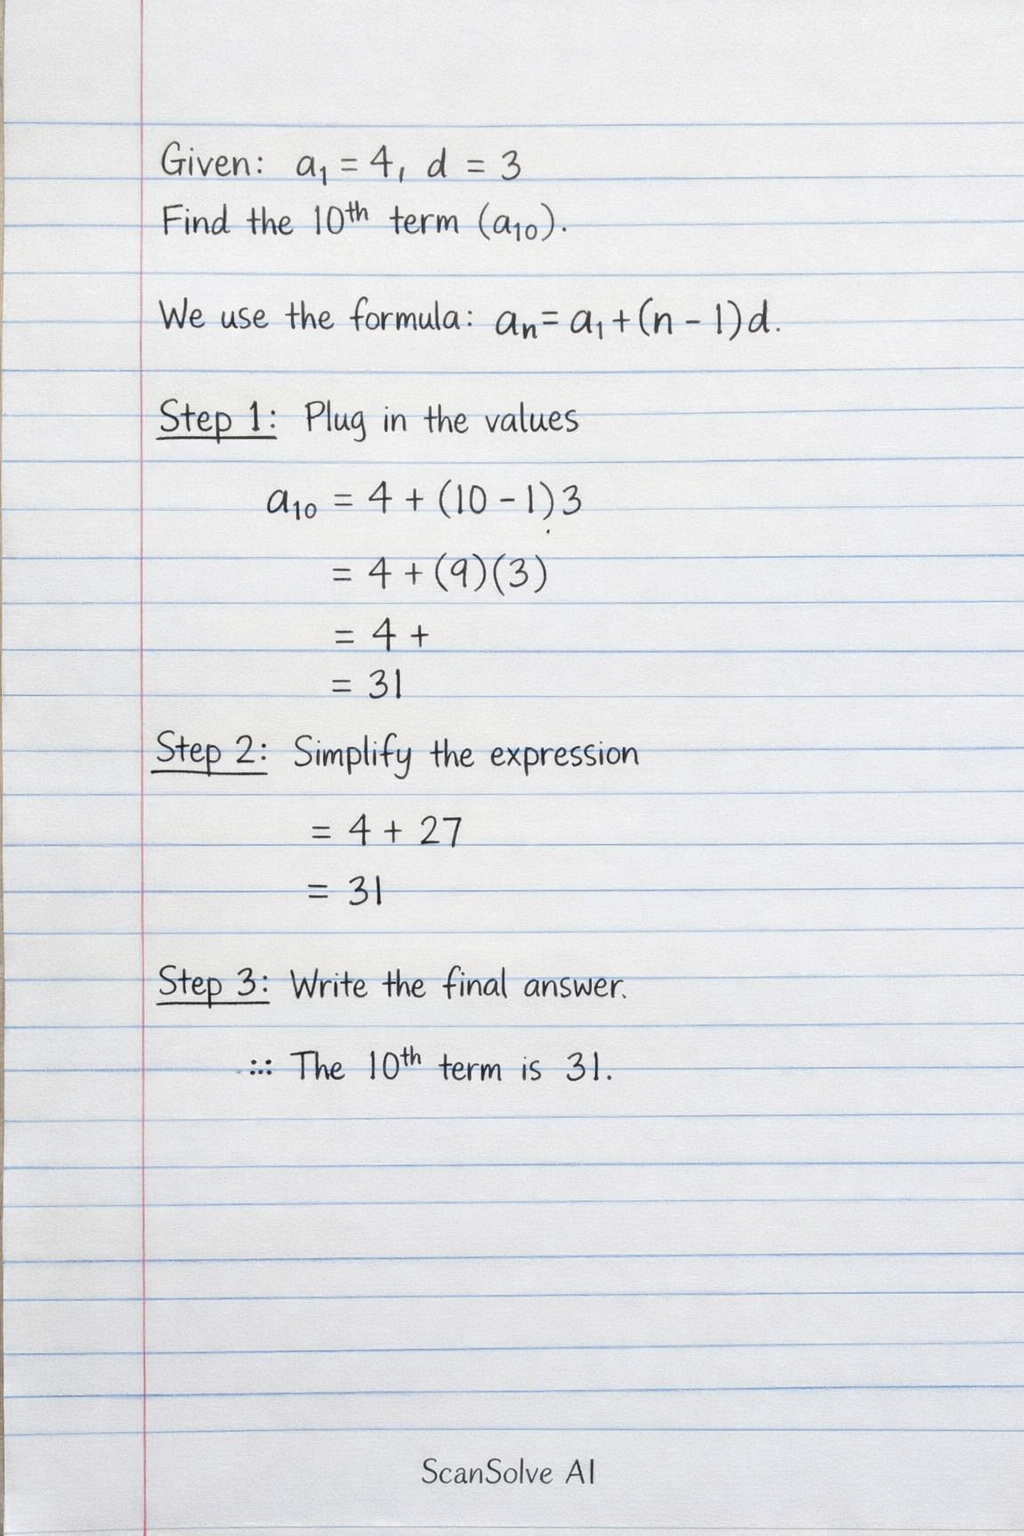 Given: a₁ = 4, d = 3
Find the 10ᵗʰ term (a₁₀).
We use the formula: aₙ = a₁ + (n - 1)d.
Step 1: Plug in the values
a₁₀ = 4 + (10 - 1)3
= 4 + (9)(3)
= 4 +
= 31
Step 2: Simplify the expression
= 4 + 27
= 31
Step 3: Write the final answer.
∴ The 10ᵗʰ term is 31.
ScanSolve AI